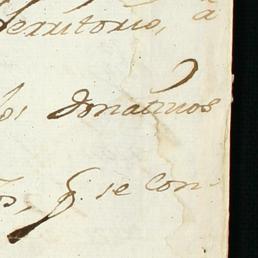 territorio, a
donativos
q. se con-